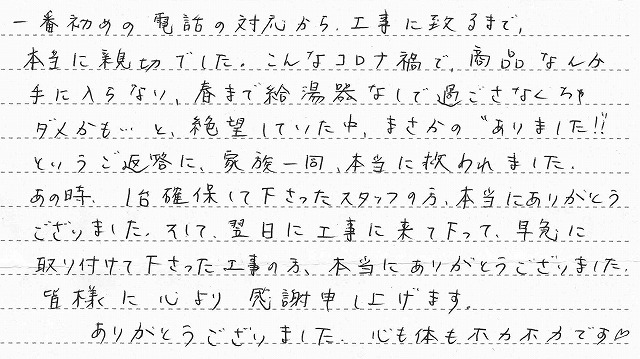 一番初めの電話の対応から、工事に致るまで、
本当に親切でした。こんなコロナ禍で、商品なんか
手に入らない、春まで給湯器なしで過ごさなくちゃ
ダメかも…と、絶望していた中、まさかの〝ありました!!
というご返答に、家族一同、本当に救われました。
あの時、1台確保して下さったスタッフの方、本当にありがとう
ございました。そして、翌日に工事に来て下って、早急に
取り付けて下さった工事の方、本当にありがとうございました。
皆様に心より感謝申し上げます。
ありがとうございました。心も体もホカホカです♡